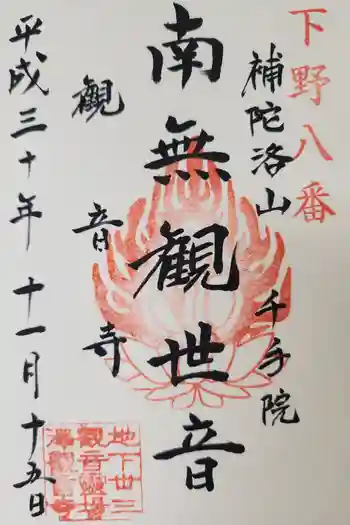 下野八番
補陀洛山
千手院
南無観世音
観音寺
平成三十年 十一月 十五日